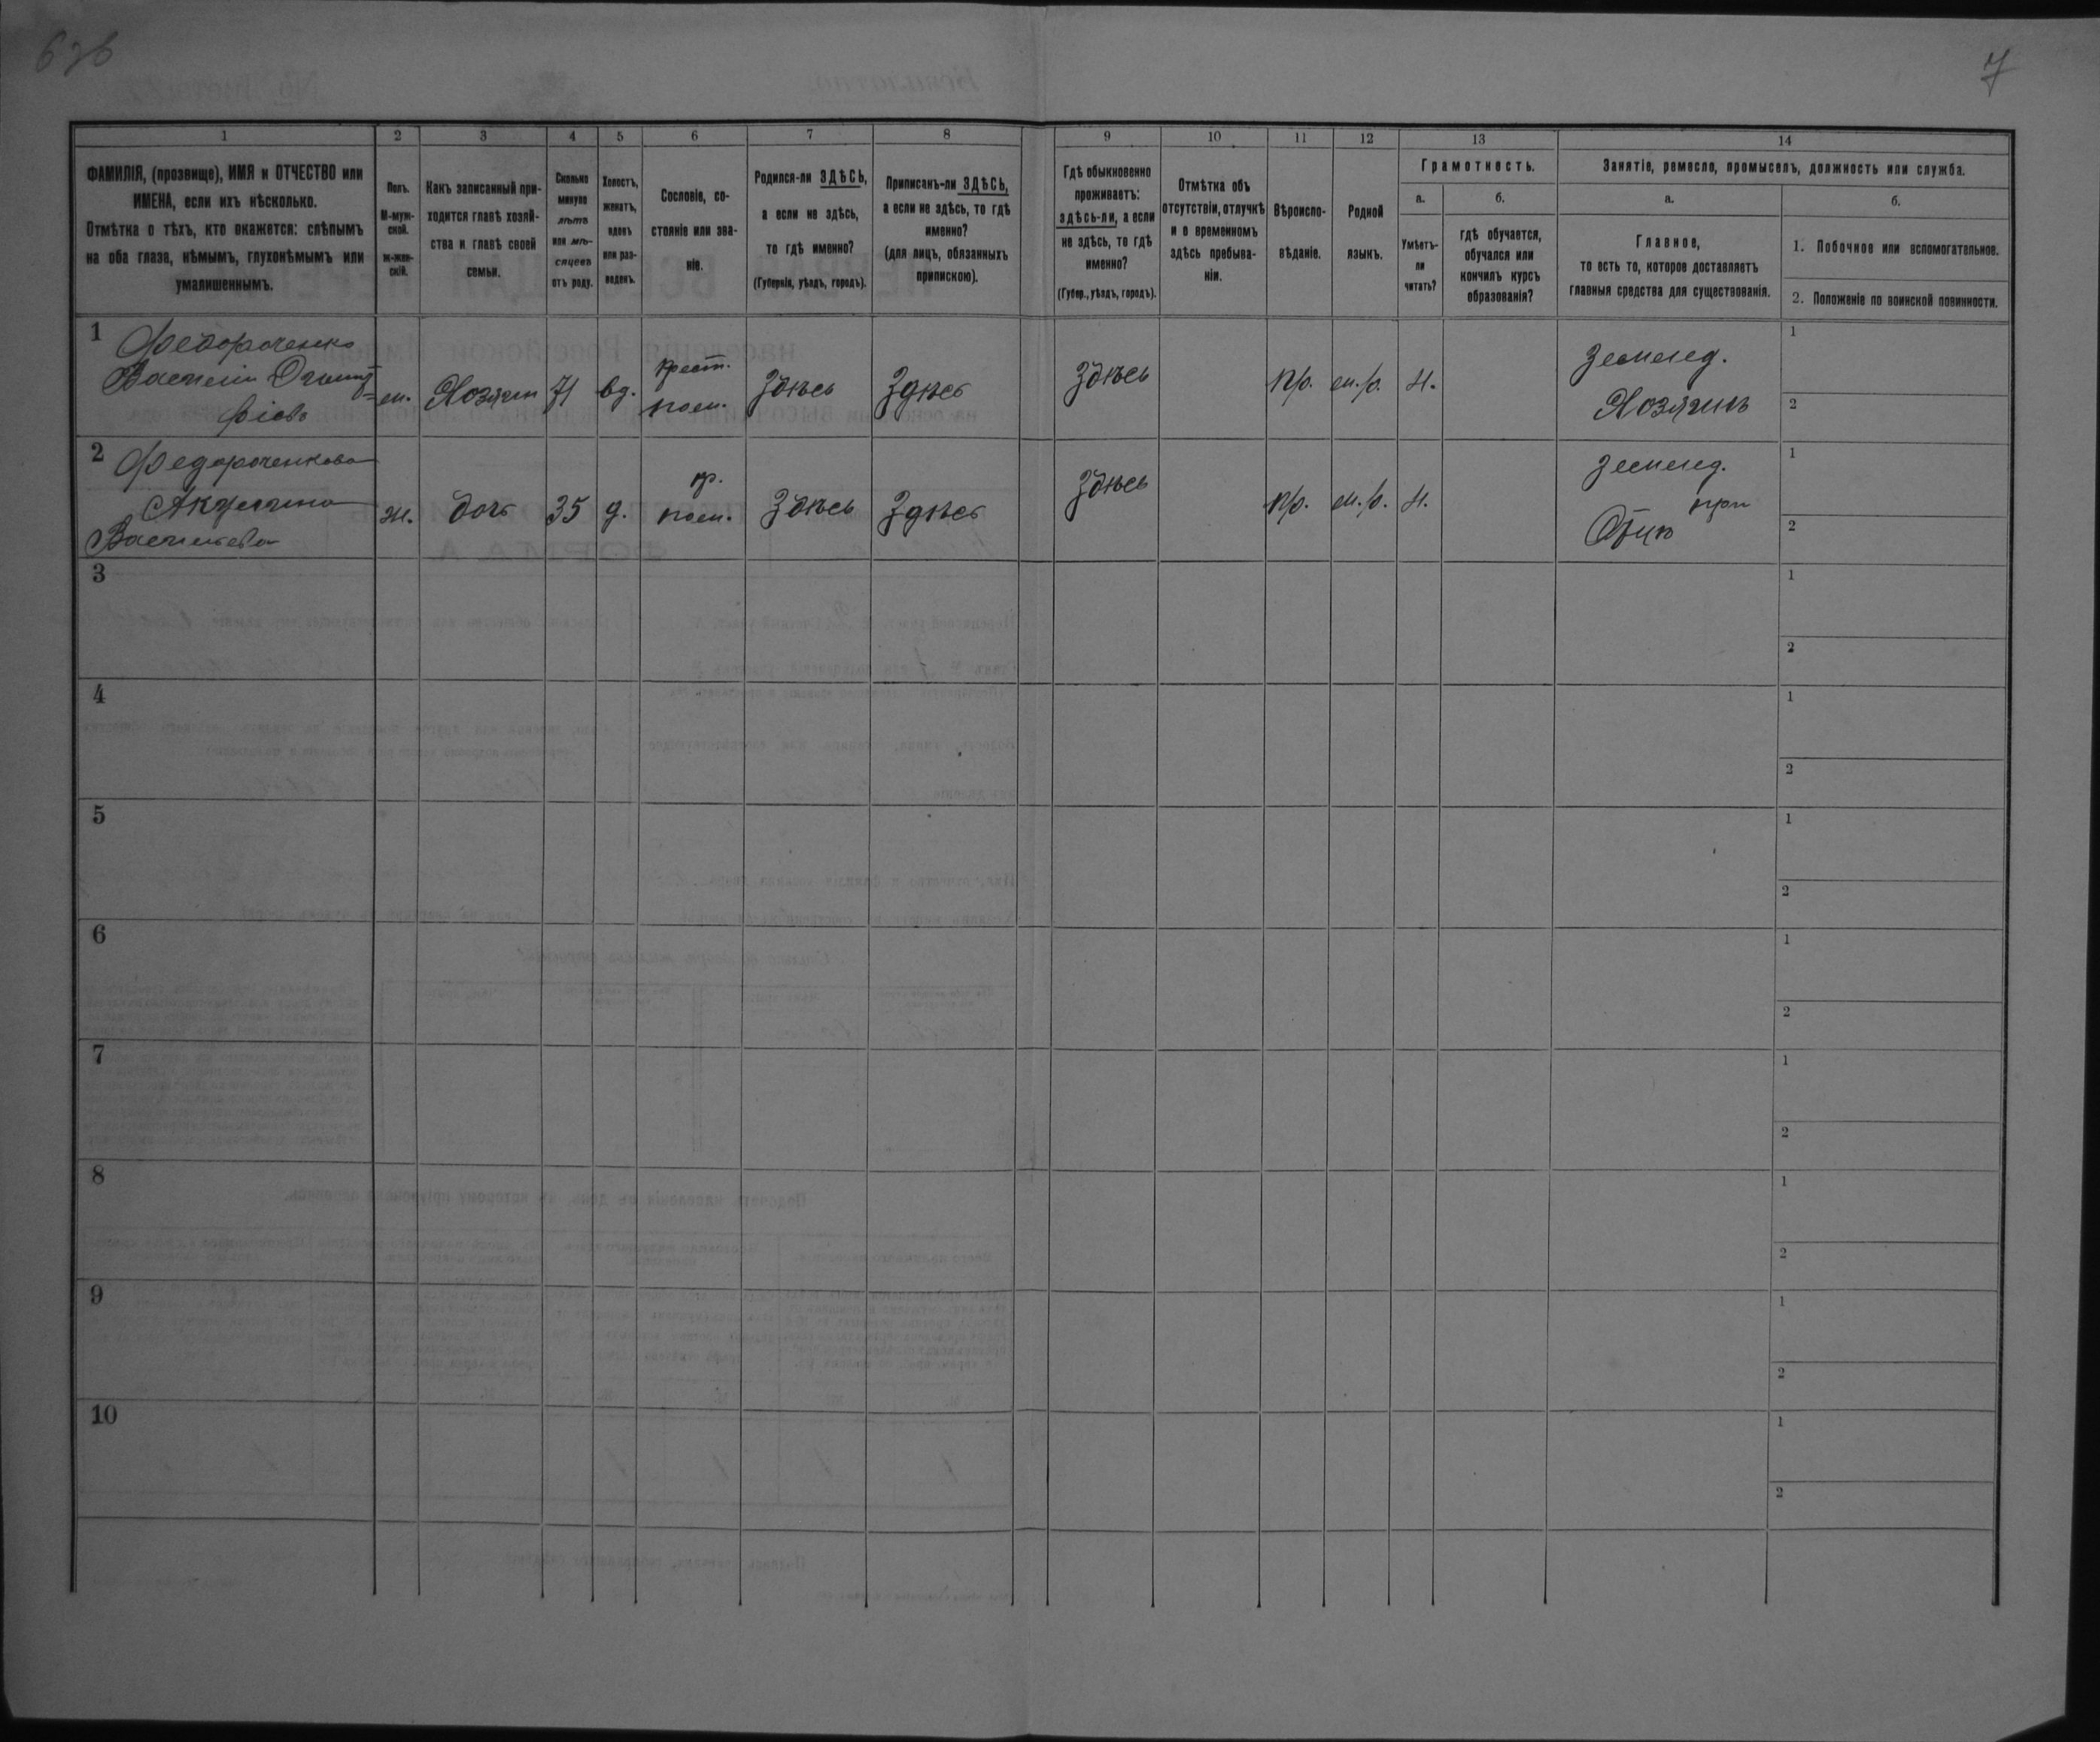 7
1 2 3 4 5 6 7 8 9 10 11 12 13 14
ФАМИЛІЯ, (прозвище), ИМЯ и ОТЧЕСТВО или
ИМЕНА, если ихъ нѣсколько.
Отмѣтка о тѣхъ, кто окажется: слѣпымъ
на оба глаза, нѣмымъ, глухонѣмымъ или
умалишеннымъ.
Полъ.
М-муж-
ской.
ж-жен-
скій.
Какъ записанный при-
ходится главѣ хозяй-
ства и главѣ своей
семьи.
Сколько
минуло
лѣтъ
или мѣ-
сяцевъ
отъ роду.
Холостъ,
женатъ,
вдовъ
или раз-
веденъ.
Сословіе, со-
стояніе или зва-
ніе.
Родился-ли ЗДѢСЬ,
а если не здѣсь,
то гдѣ именно?
(Губернія, уѣздъ, городъ).
Приписанъ-ли ЗДѢСЬ,
а если не здѣсь, то гдѣ
именно?
(для лицъ, обязанныхъ
припискою).
Гдѣ обыкновенно
проживаетъ:
здѣсь-ли, а если
не здѣсь, то гдѣ
именно?
(Губер., уѣздъ, городъ).
Отмѣтка объ
отсутствіи, отлучкѣ
и о временномъ
здѣсь пребыва-
ніи.
Вѣроиспо-
вѣданіе.
Родной
языкъ.
Грамотность.
а.
Умѣетъ-
ли
читать?
б.
гдѣ обучается,
обучался или
кончилъ курсъ
образованія?
Занятіе, ремесло, промыселъ, должность или служба.
а.
Главное,
то есть то, которое доставляетъ
главныя средства для существованія.
б.
1. Побочное или вспомогательное.
2. Положеніе по воинской повинности.
1 Федорченко
Василій
м. Хозяин 71 вд. крест. Здѣсь Здѣсь Здѣсь пр. м.р. н. Землед.
Хозяинъ
1
2
2 Федорченкова
Акулина
Васильева
ж. дочь 35 д. кр. Здѣсь Здѣсь Здѣсь пр. м.р. н. Землед.
при
Отцѣ
1
2
3 1
2
4 1
2
5 1
2
6 1
2
7 1
2
8 1
2
9 1
2
10 1
2